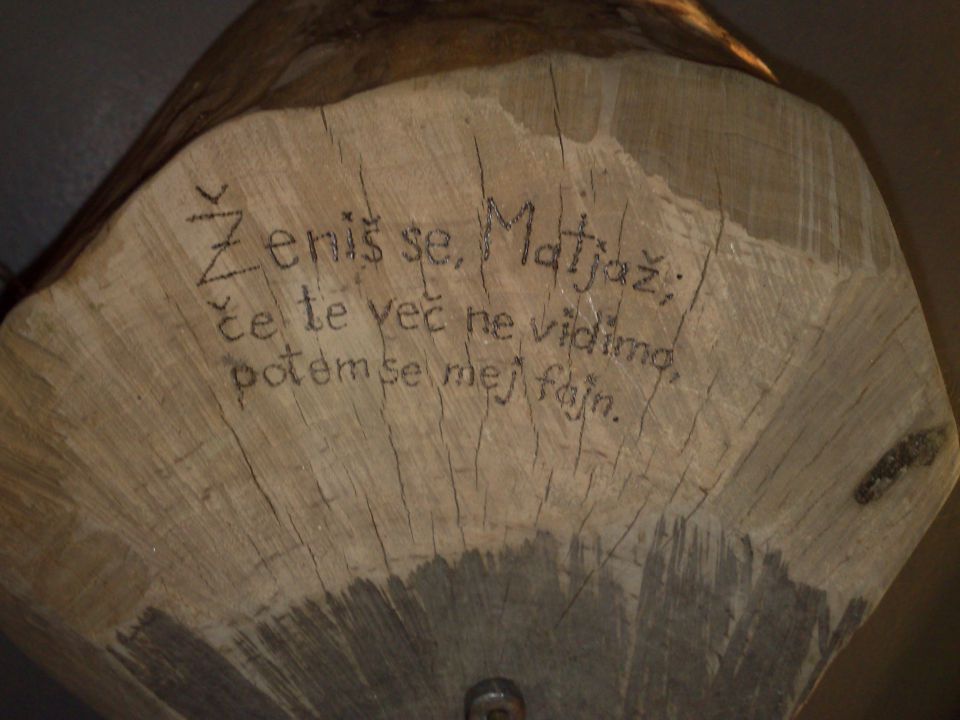 Ženiš se, Matjaž;
če te več ne vidimo,
potem se mej fajn.